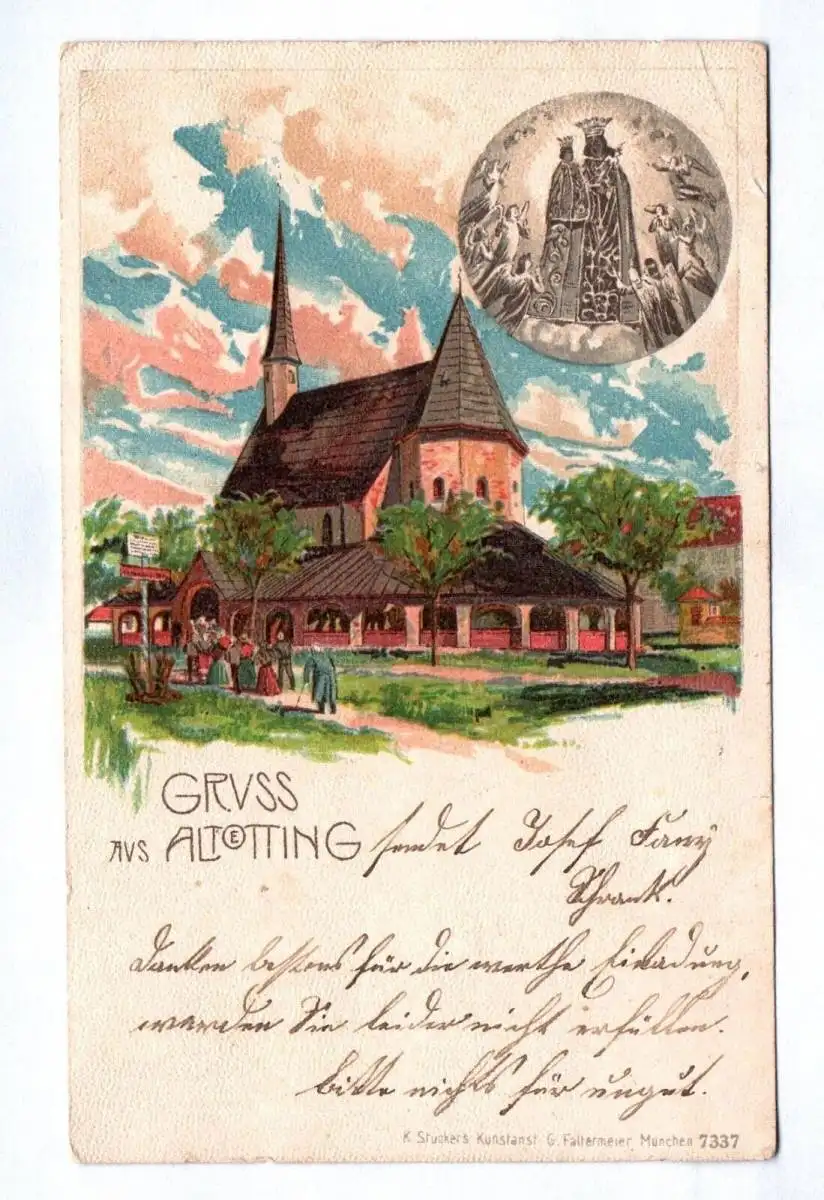 GRVSS
AVS ALTOETTING sendet Josef Fany
Schrank.
Danken bestens für die werthe Einladung,
werden Sie leider nicht erfüllen.
Bitte nichts für ungut.
K. Stücker's Kunstanst. G. Faltermeier, München 7337